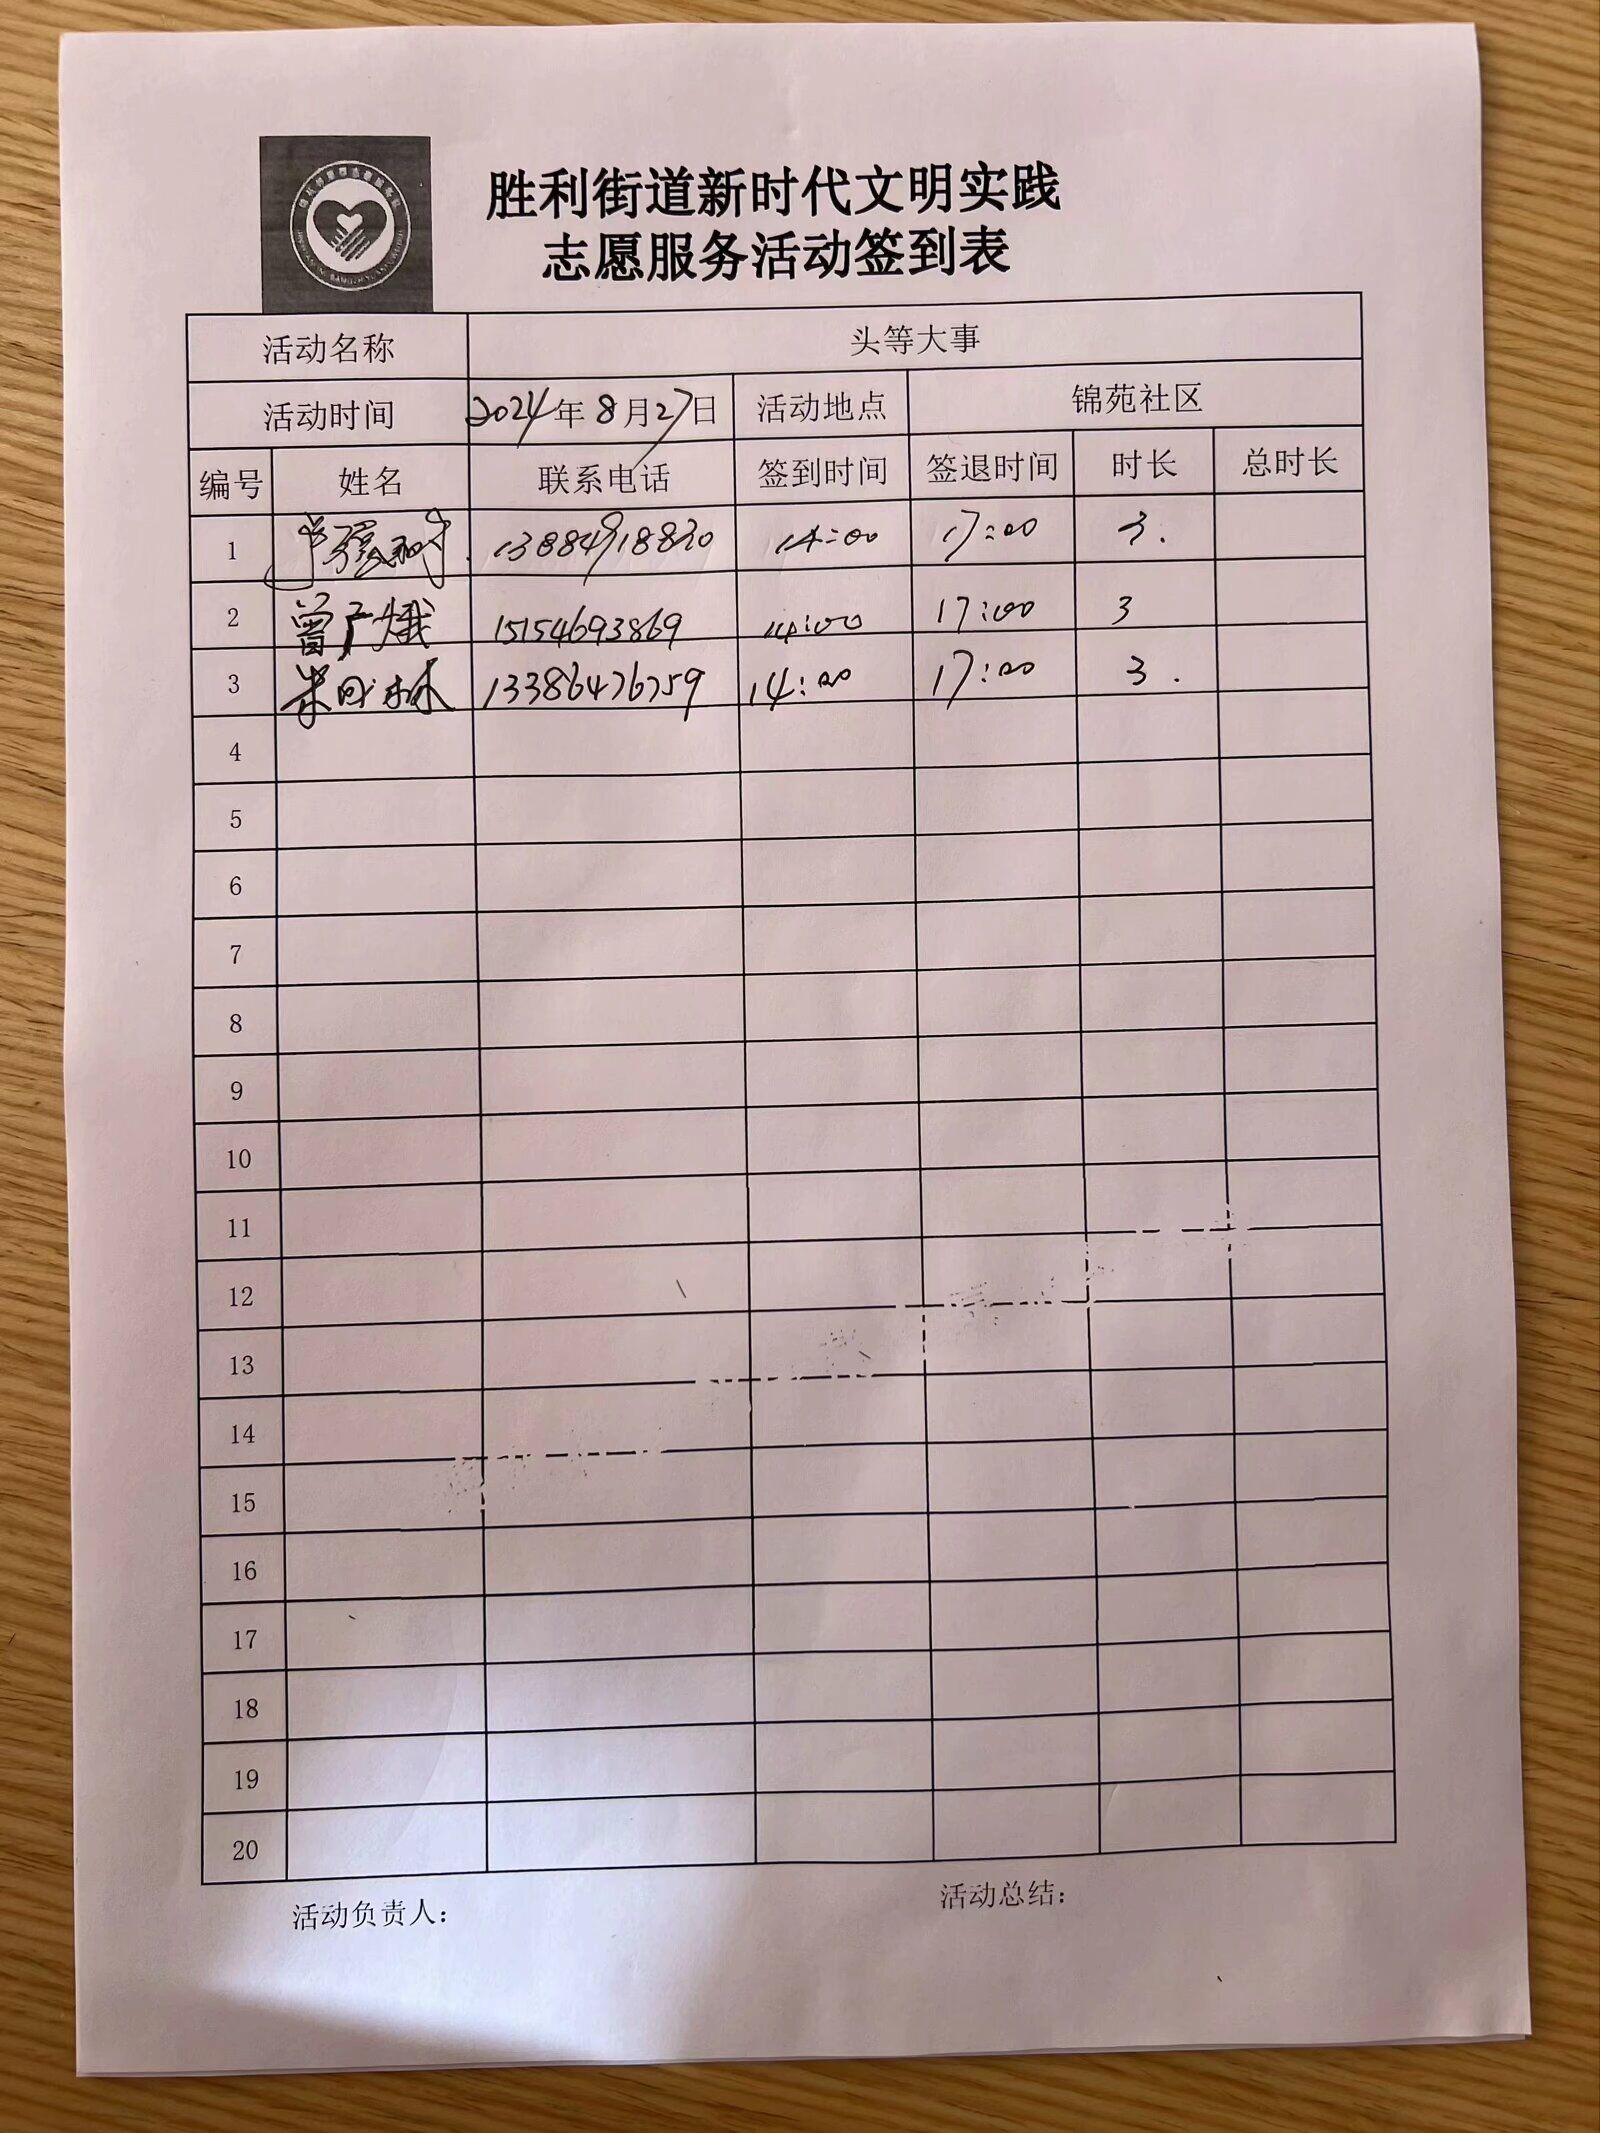 胜利街道新时代文明实践
志愿服务活动签到表
活动名称 头等大事
活动时间 2024年8月27日 活动地点 锦苑社区
编号 姓名 联系电话 签到时间 签退时间 时长 总时长
1 13884918830 14:00 17:00 3.
2 曾广娥 15154693869 14:00 17:00 3
3 13386476759 14:00 17:00 3.
4
5
6
7
8
9
10
11
12
13
14
15
16
17
18
19
20
活动负责人： 活动总结：